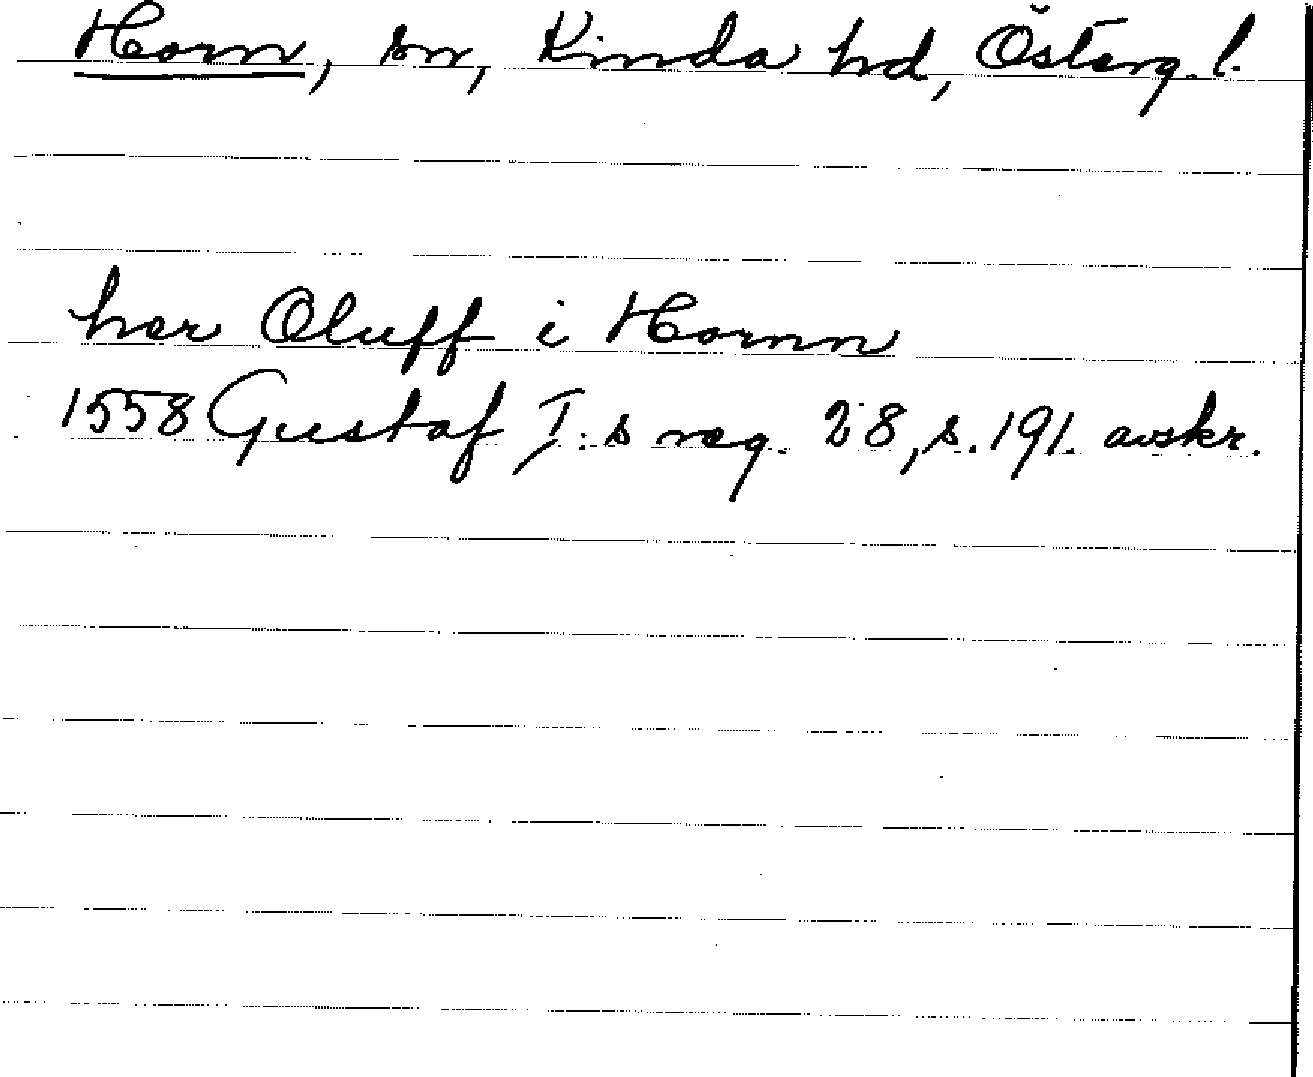 Horn, sn, Kinda hd, Österg. l.
her Oluff i Hornn
1558 Gustaf I:s reg. 28, s. 191. avskr.